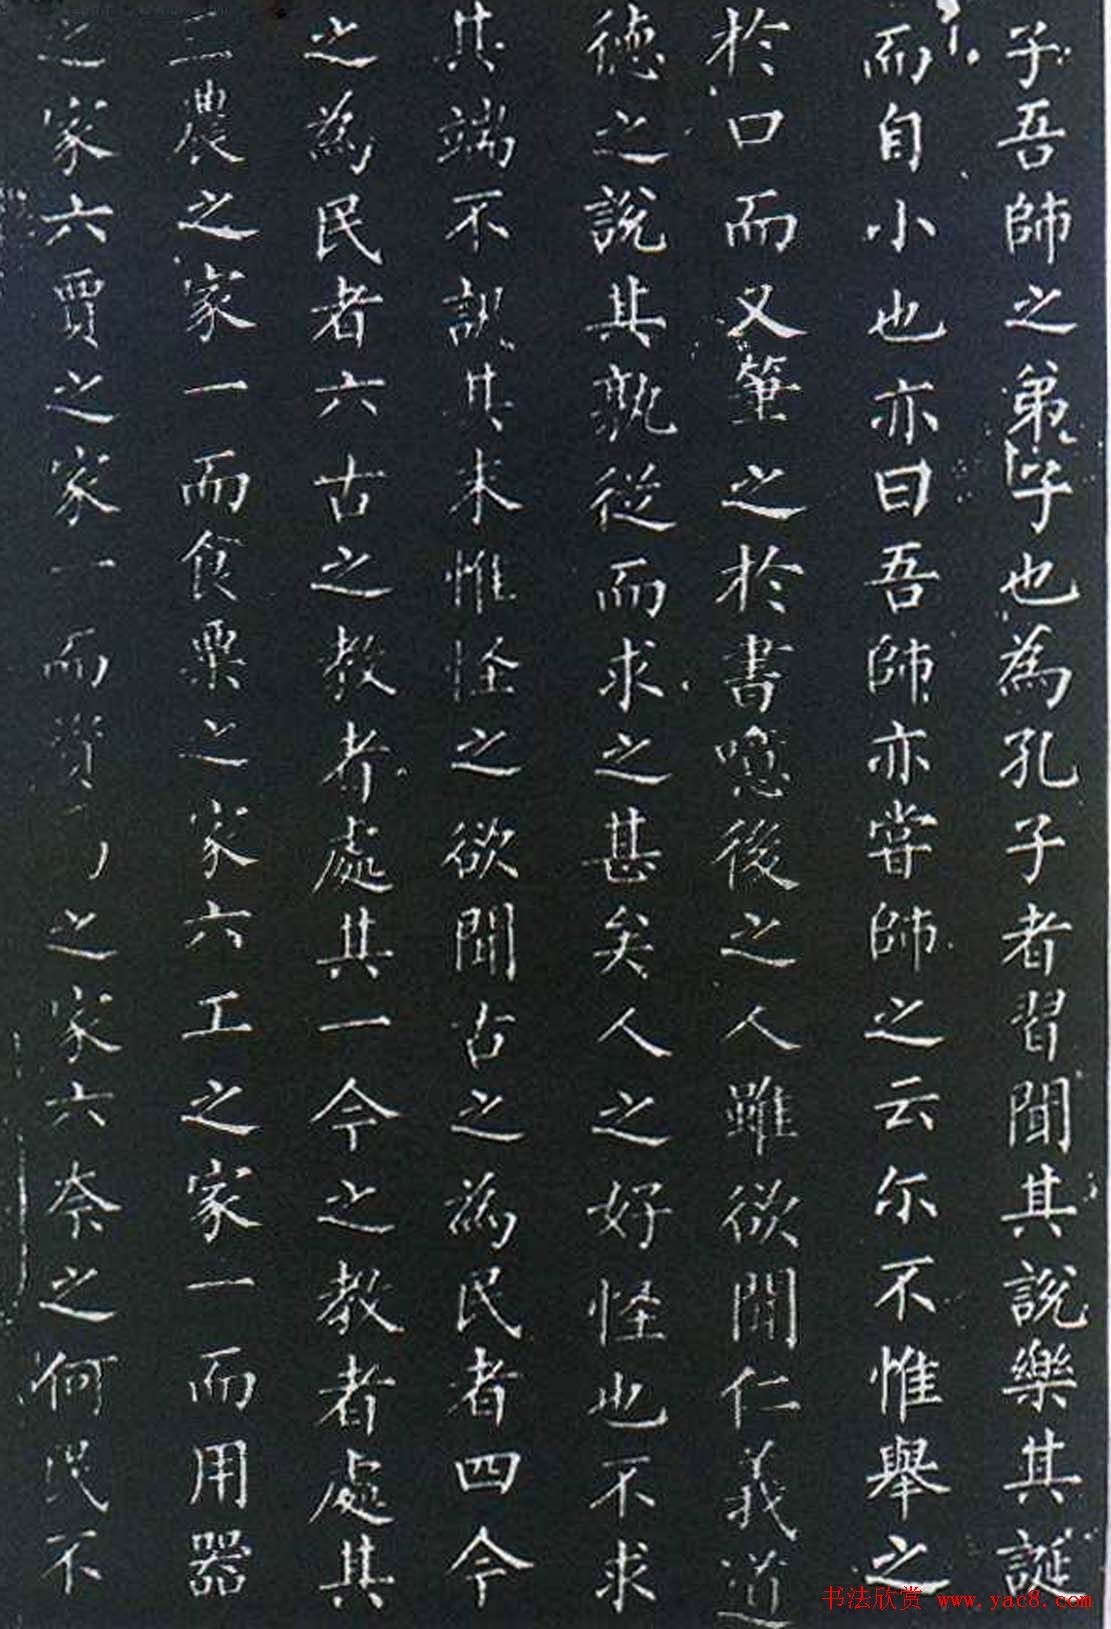 子吾師之弟子也為孔子者習聞其說樂其誕
而自小也亦曰吾師亦甞師之云尔不惟舉之
於口而又筆之於書噫後之人雖欲聞仁義道
德之說其孰從而求之甚矣人之好怪也不求
其端不訊其末惟怪之欲聞古之為民者四今
之為民者六古之教者處其一今之教者處其
三農之家一而食粟之家六工之家一而用器
之家六賈之家一而資之家六奈之何民不
书法欣赏 www.yac8.com